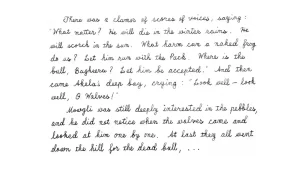 There was a clamor of scores of voices, saying:
"What matter? He will die in the winter rains. He
will scorch in the sun. What harm can a naked frog
do us? Let him run with the Pack. Where is the
bull, Bagheera? Let him be accepted." And then
came Akela's deep bay, crying: "Look well - look
well, O Wolves!"
Mowgli was still deeply interested in the pebbles,
and he did not notice when the wolves came and
looked at him one by one. At last they all went
down the hill for the dead bull, ...